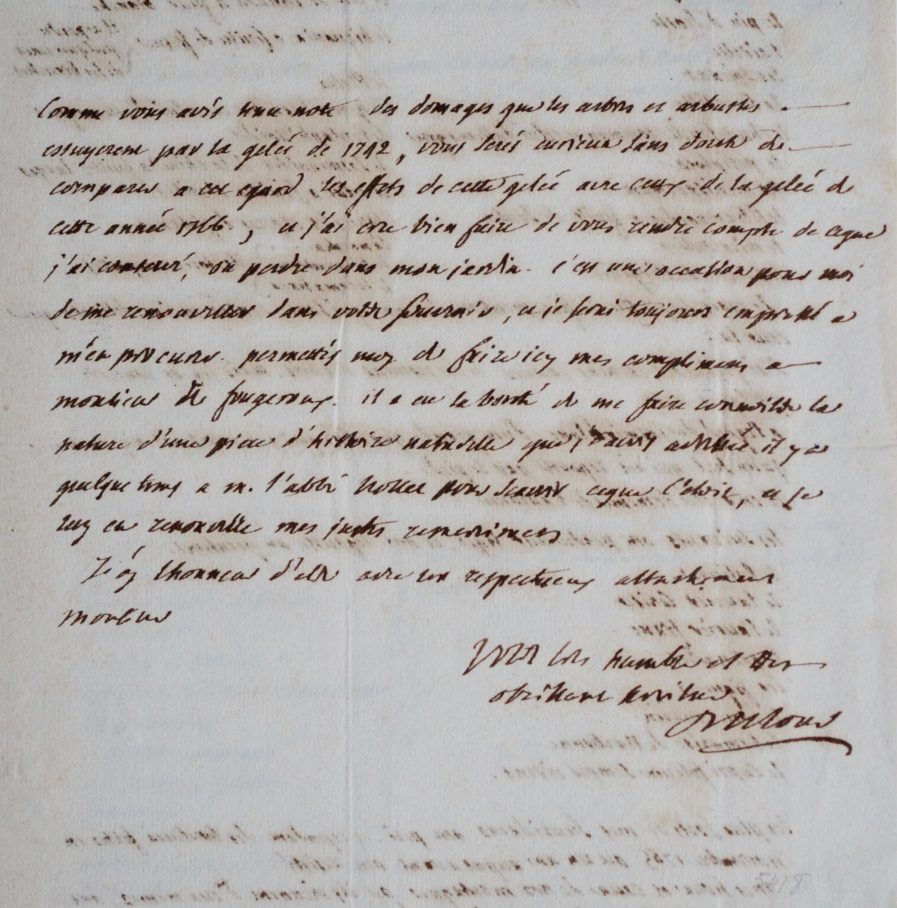 Comme vous avés tenu note des domages que les arbres et arbustes
essuyerent par la gelée de 1742, vous serés curieux sans doute de
comparer a cet egard les effets de cette gelée avec ceux de la gelée de
cette année 1766, et j'ai cru bien faire de vous rendre compte de ceque
j'ai conservé, ou perdu dans mon jardin. c'est une occasion pour moi
de me renouveller dans votre souvenir, et je serai toujours empressé a
m'en procurer. permettés moy de faire icy mes complimens a
monsieur de fougeroux. il a eu la bonté de me faire connoitre la
nature d'une piece d'histoire naturelle que j'avois adressée il y a
quelque tems a m. l'abbé nollet pour scavoir ceque c'etoit, et je
luy en renouvelle mes justes remerciments
J'ay l'honneur d'etre avec un respectueux attachement
monsieur
votre tres humble et tres
obeissant serviteur
5418